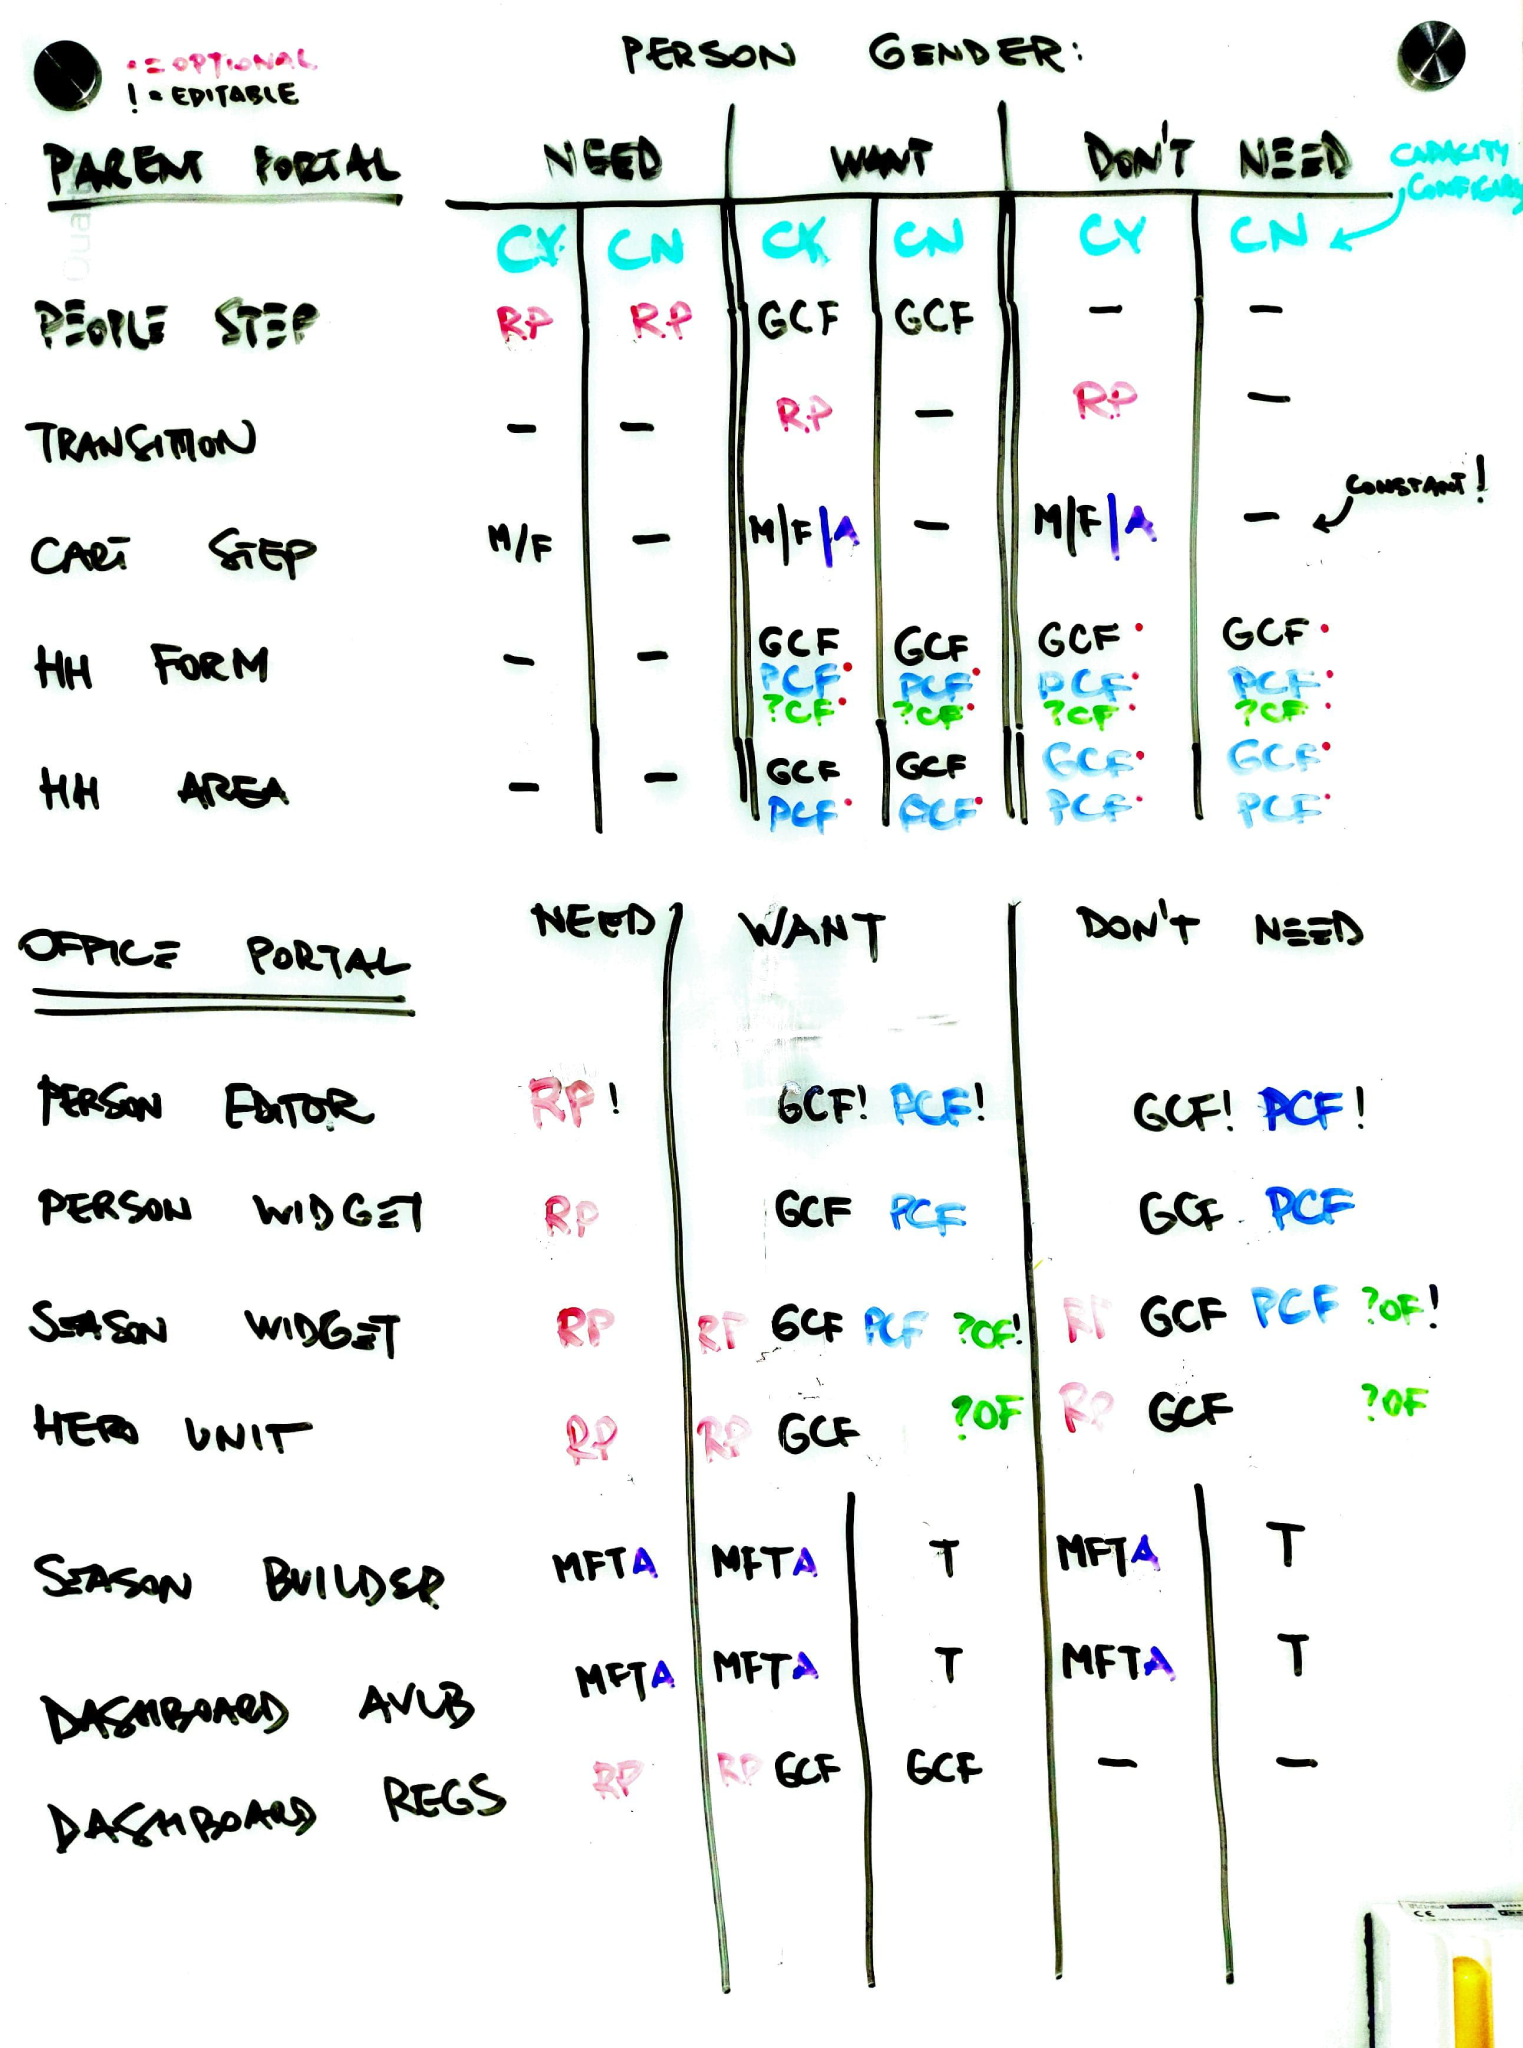 • = OPTIONAL
! = EDITABLE
PERSON GENDER:
PARENT PORTAL NEED WANT DON'T NEED CAPACITY
CY CN CY CN CY CN
PEOPLE STEP RP RP GCF GCF — —
TRANSITION — — RP — RP —
CONSTANT!
CART STEP M/F — M/F/A — M/F/A —
HH FORM — — GCF GCF GCF• GCF•
PCF• PCF• PCF• PCF•
?CF• ?CF• ?CF• ?CF•
HH AREA — — GCF GCF GCF• GCF•
PCF• PCF• PCF• PCF•
OFFICE PORTAL NEED WANT DON'T NEED
PERSON EDITOR RP! GCF! PCF! GCF! PCF!
PERSON WIDGET RP GCF PCF GCF PCF
SEASON WIDGET RP RP GCF PCF ?OF! RP GCF PCF ?OF!
HERO UNIT RP RP GCF ?OF RP GCF ?OF
SEASON BUILDER MFTA MFTA T MFTA T
DASHBOARD AVLB MFTA MFTA T MFTA T
DASHBOARD REGS RP RP GCF GCF — —
CE